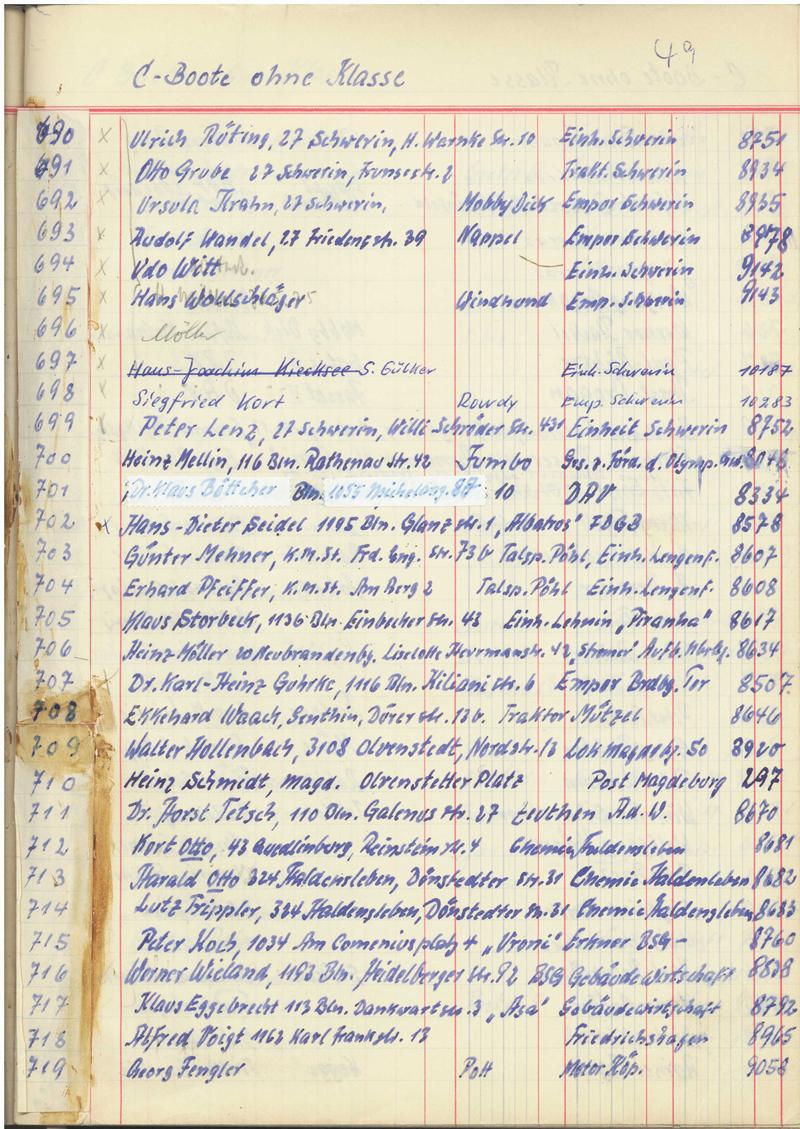 49
C-Boote ohne Klasse
690 x Ulrich Röting, 27 Schwerin, H. Warnke Str. 10 Einh. Schwerin 8751
691 x Otto Grube 27 Schwerin, str. 2 Trakt. Schwerin 8934
692 x Ursula Krahn, 27 Schwerin, Mobby Dick Empor Schwerin 8935
693 x Rudolf Wandel, 27 Friedensstr. 39 Nappel Empor Schwerin
694 x Udo Witt Einh. Schwerin 9142
695 x Hans Wollschläger Windhund Emp. Schwerin 9143
696 x Möller
697 x Hans-Joachim Kiecksee S. Gülker Einh. Schwerin 10187
698 x Siegfried Kort Rowdy Emp. Schwerin 10283
699 x Peter Lenz, 27 Schwerin, Willi Schröder Str. Einheit Schwerin 8752
700 Heinz Mellin, 116 Bln. Rathenau Str. 42 Jumbo Ges. z. Förd. d. Olymp.
701 Dr. Klaus Böttcher Bln. 1055 10 DAV 8334
702 x Hans-Dieter Seidel 1195 Bln. Glanzstr. 1, „Albatros" FDGB 8578
703 Günter Mehner, K.M.St. Frd. Eng. Str. 73b Talsp. Pöhl, Einh. Lengenf. 8607
704 Erhard Pfeiffer, K.M.St. Am Berg 2 Talsp. Pöhl Einh. Lengenf. 8608
705 Klaus Storbeck, 1136 Bln. Einbecher Str. 43 Einh. Lehnin „Piranha" 8617
706 Heinz Möller 20 Neubrandenbg. Liselotte Herrmannstr. 42 Aufb. Nbrdg. 8634
707 x Dr. Karl-Heinz Guhrke, 1116 Bln. Kilianistr. 6 Empor Brdbg. Tor 8507
708 Ekkehard Waach, Genthin, Dürerstr. 13b. Traktor Mützel 8646
709 Walter Hollenbach, 3108 Olvenstedt, Nordstr. 13 Lok Magdebg. SO 8920
710 Heinz Schmidt, Magd. Olvenstetter Platz Post Magdeburg 297
711 Dr. Horst Tetsch, 110 Bln. Galenus Str. 27 Zeuthen A.d.W. 8670
712 Kort Otto, 43 Quedlinburg, Reinstein Str. 4 Chemie Haldensleben 8681
713 Harald Otto 324 Haldensleben, Dönstedter Str. 31 Chemie Haldensleben 8682
714 Lutz Trippler, 324 Haldensleben, Dönstedter Str. 31 Chemie Haldensleben 8683
715 Peter Koch, 1034 Am Comeniusplatz 4 „Vroni" Erkner BSG - 8760
716 Werner Wieland, 1193 Bln. Heidelberger Str. 92 BSG Gebäudewirtschaft 8838
717 Klaus Eggebrecht 113 Bln. Dankwartstr. 3 „Asa" Gebäudewirtschaft 8792
718 Alfred Voigt 1162 Karl Frankstr. 13 Friedrichshagen 8965
719 Georg Fengler Pott Motor Köp. 9058